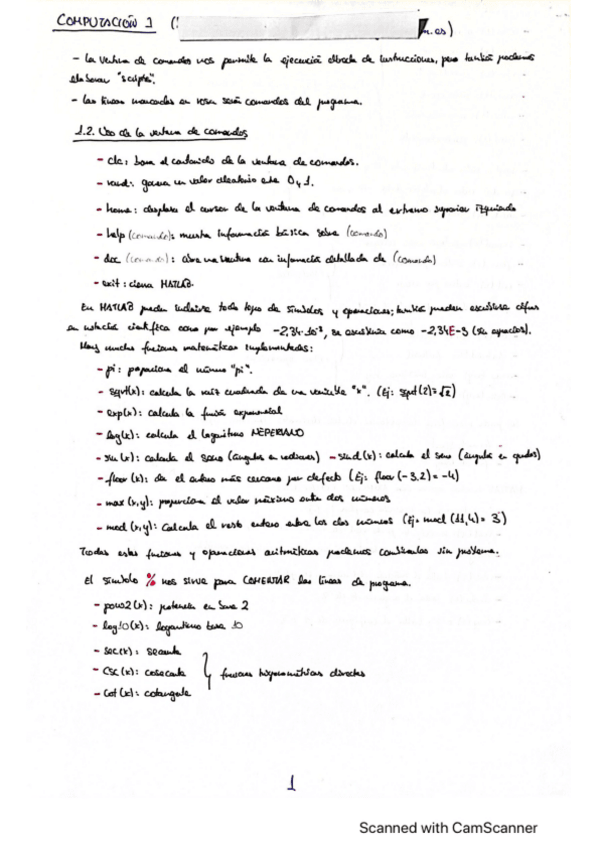 COMPUTACIÓN 1 (
n.es)
- La ventana de comandos nos permite la ejecución directa de instrucciones, pero también podemos
elaborar "scripts".
- Las líneas marcadas en rosa serán comandos del programa.
1.2. Uso de la ventana de comandos
- clc: borra el contenido de la ventana de comandos.
- rand: genera un valor aleatorio entre 0 y 1.
- home: desplaza el cursor de la ventana de comandos al extremo superior izquierdo
- help (comando): muestra información básica sobre (comando)
- doc (comando): abre una ventana con información detallada de (comando)
- exit: cierra MATLAB.
En MATLAB pueden incluirse todo tipo de símbolos y operaciones; también pueden escribirse cifras
en notación científica como por ejemplo -2,34·10⁻³, se escribiría como -2,34E-3 (sin espacios).
Hay muchas funciones matemáticas implementadas:
- pi: proporciona el número "pi".
- sqrt(x): calcula la raíz cuadrada de una variable "x". (Ej: sqrt(2)=√2)
- exp(x): calcula la función exponencial
- log(x): calcula el logaritmo NEPERIANO
- sin(x): calcula el seno (ángulos en radianes) - sind(x): calcula el seno (ángulo en grados)
- floor(x): da el entero más cercano por defecto (Ej: floor(-3.2)=-4)
- max(x,y): proporciona el valor máximo entre dos números
- mod(x,y): calcula el resto entero entre los dos números (Ej: mod(11,4)= 3)
Todas estas funciones y operaciones aritméticas podemos combinarlas sin problema.
El símbolo % nos sirve para COMENTAR las líneas de programa.
- pow2(x): potencia en base 2
- log10(x): logaritmo base 10
- sec(x): secante
- csc(x): cosecante funciones trigonométricas directas
- cot(x): cotangente
1
Scanned with CamScanner